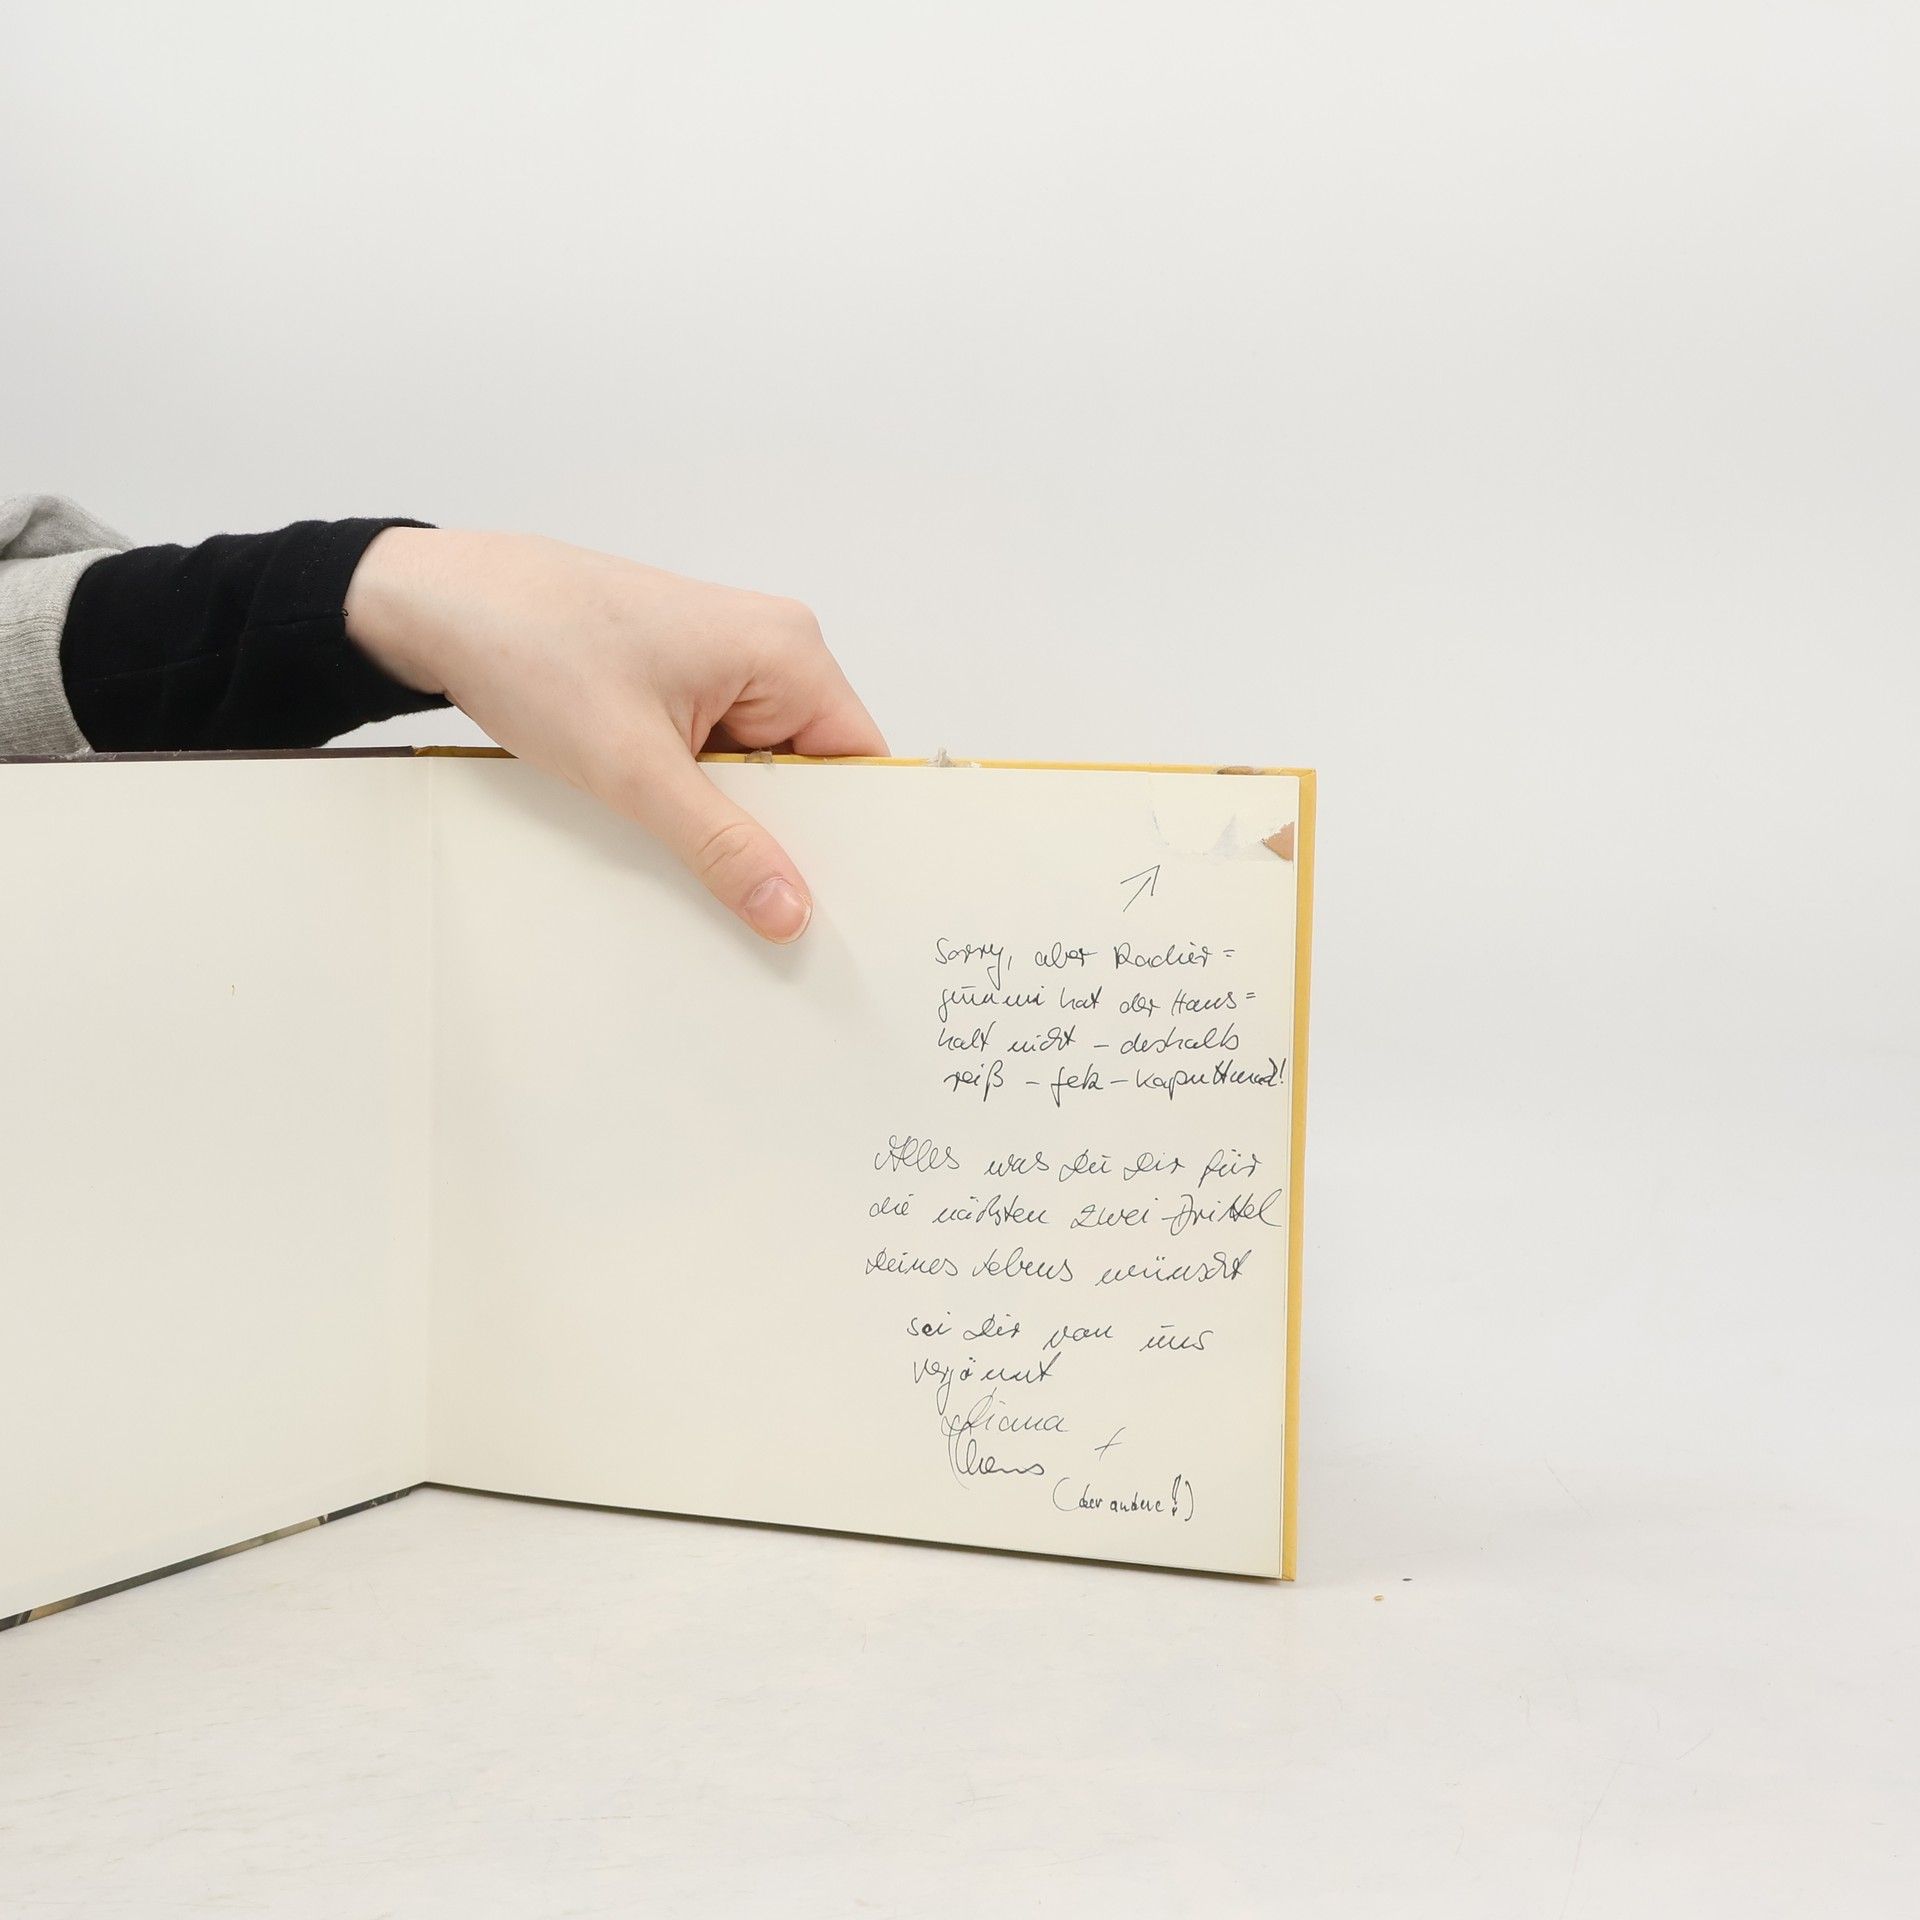 Sorry, aber Radier=
gummi hat der Haus=
halt nicht – deshalb
reiß – fetz – kaputt
Alles was Du Dir für
die nächsten zwei-Drittel
Deines Lebens wünscht
sei Dir von uns
vergönnt
Diana +
(der andere!)